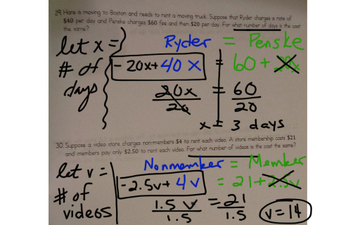 29. Hans is moving to Boston and needs to rent a moving truck. Suppose that Ryder charges a rate of
$40 per day and Penske charges $60 fee and then $20 per day. For what number of days is the cost
the same?
let x = Ryder = Penske
# of days
- 20x + 40x = 60 +
20x = 60
20 20
x = 3 days
30. Suppose a video store charges nonmembers $4 to rent each video. A store membership costs $21
and members pay only $2.50 to rent each video. For what number of videos is the cost the same?
let v = Nonmember = Member
# of videos
-2.5v + 4v = 21 + 2.5v
1.5v = 21
1.5 1.5
v = 14